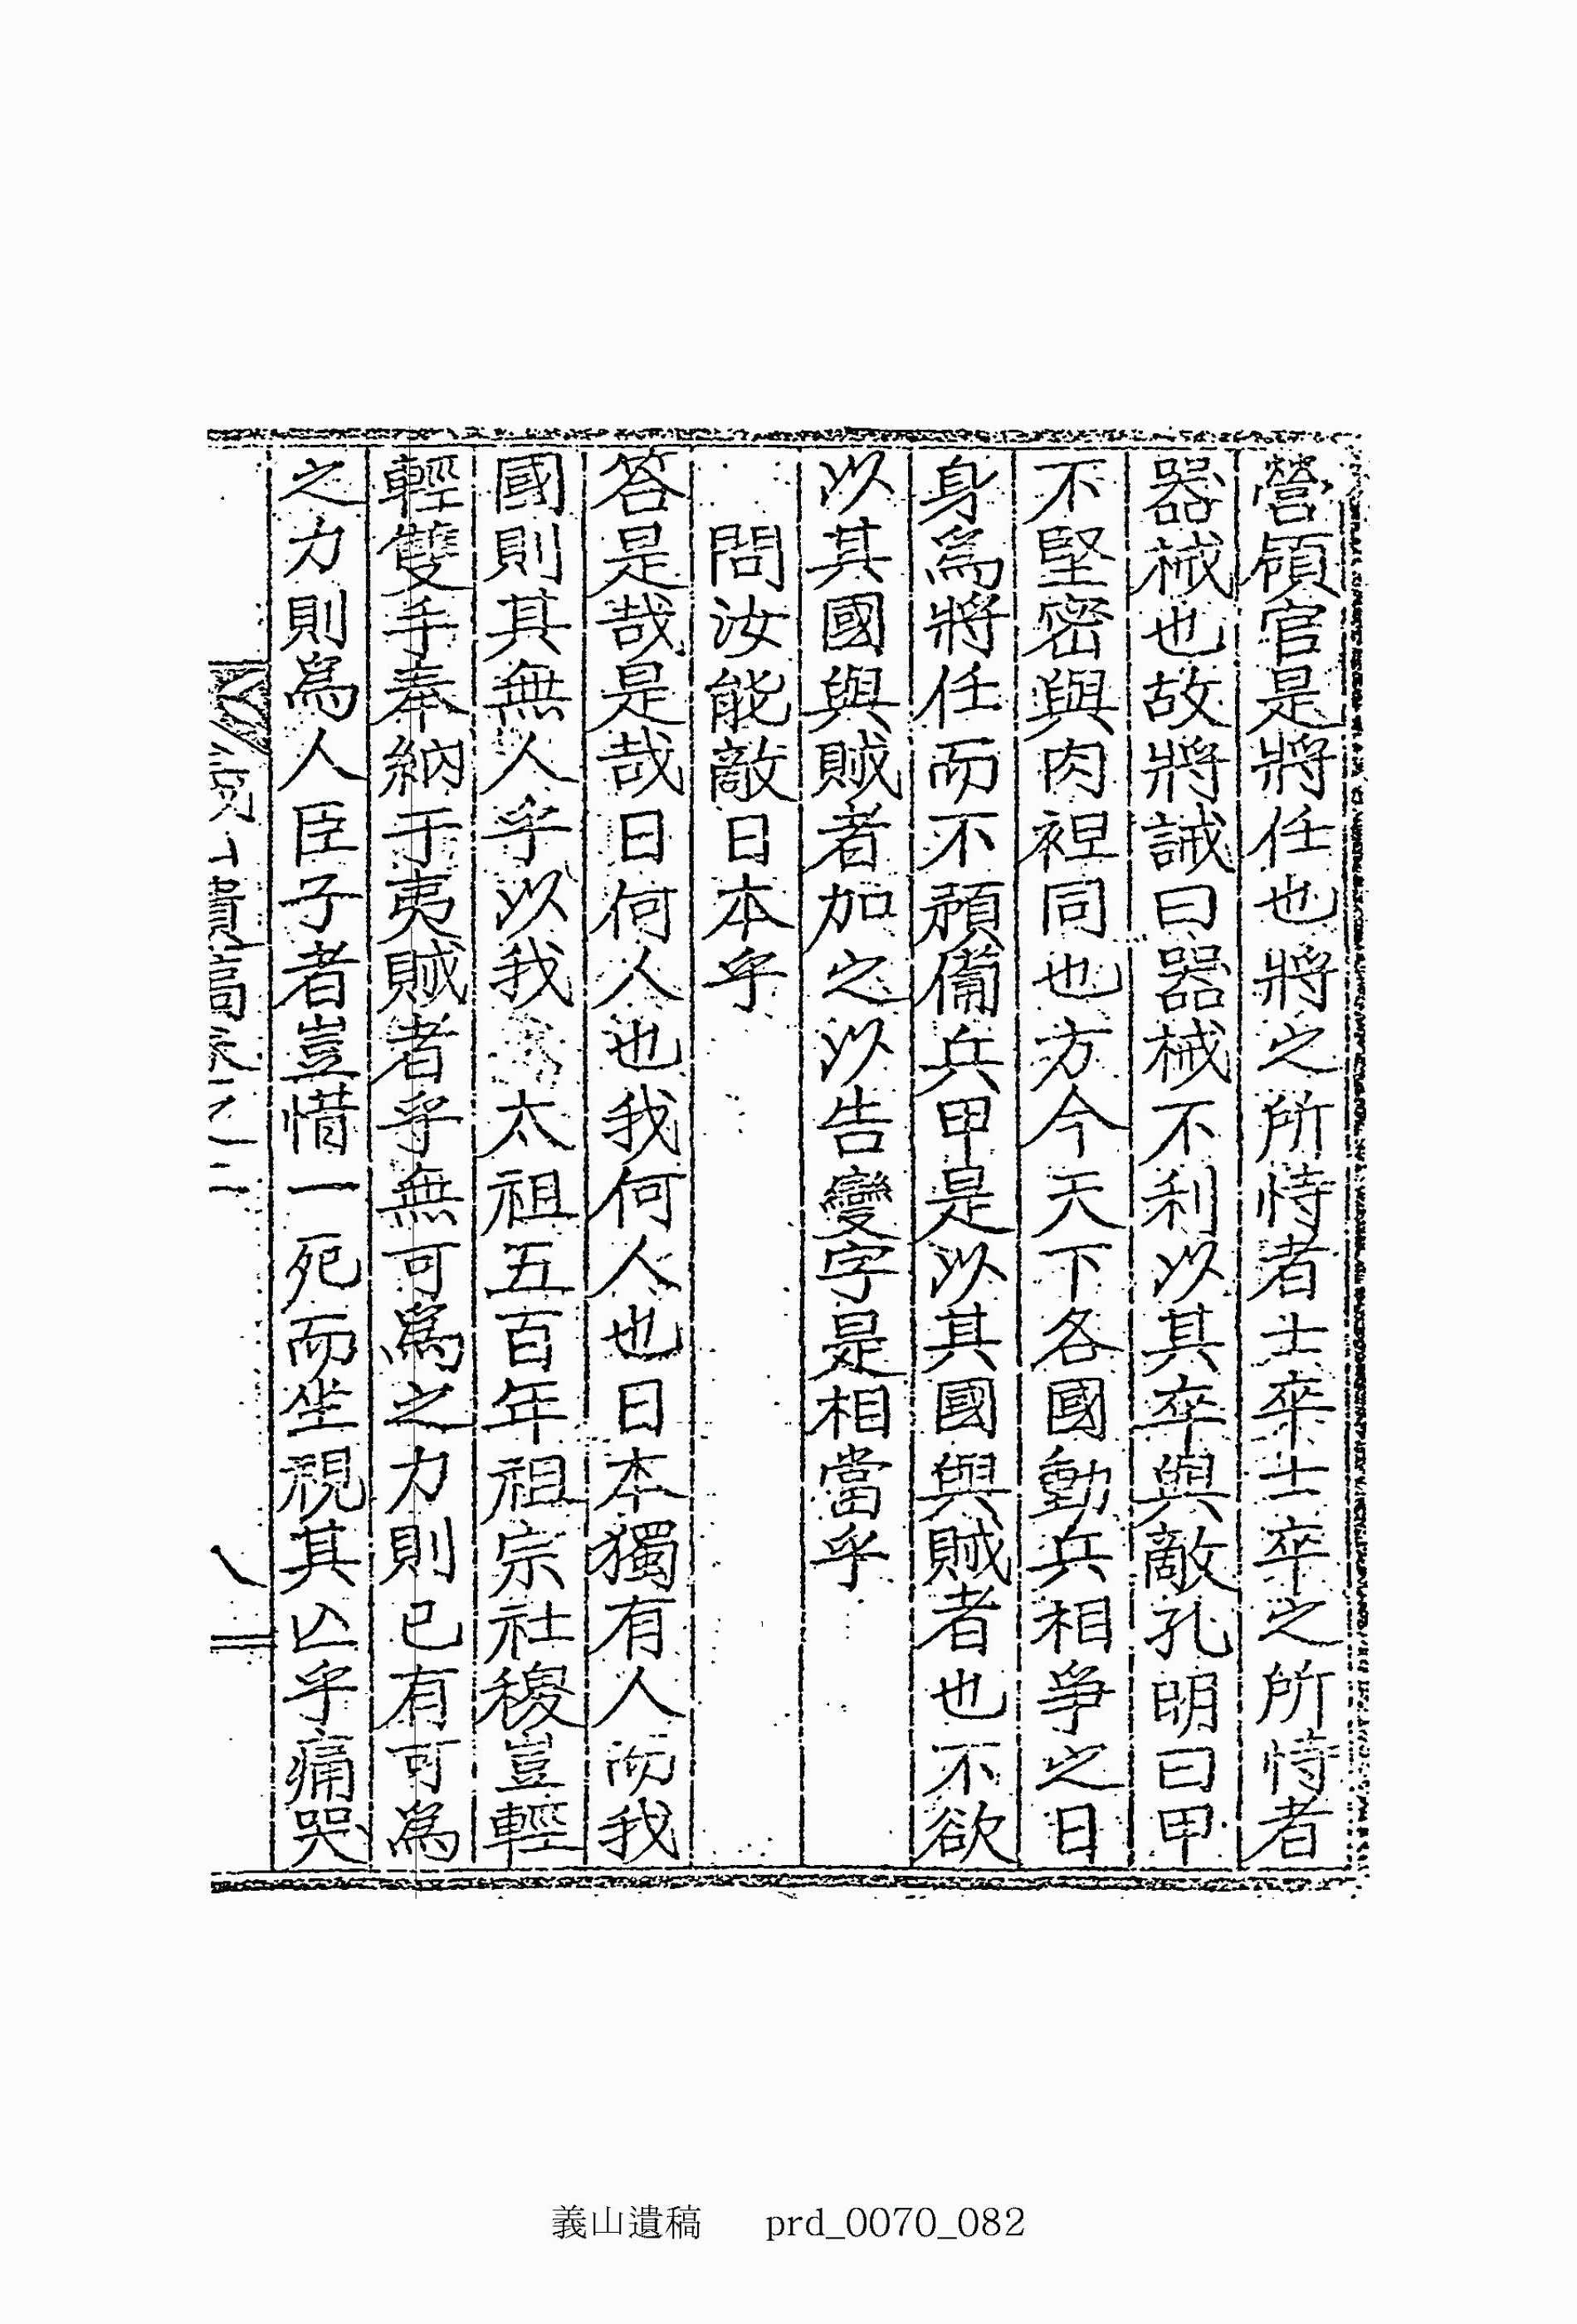 營領官是將任也將之所恃者士卒士卒之所恃者
器械也故將誡曰器械不利以其卒與敵孔明曰甲
不堅密與肉裎同也方今天下各國動兵相爭之日
身爲將任而不預備兵甲是以其國與賊者也不欲
以其國與賊者加之以告變字是相當乎
問汝能敵日本乎
答是哉是哉日何人也我何人也日本獨有人而我
國則其無人乎以我太祖五百年祖宗社稷豈輕
輕雙手奉納于夷賊者乎無可爲之力則已有可爲
之力則爲人臣子者豈惜一死而坐視其亡乎痛哭
山遺稿卷之二
八
義山遺稿 prd_0070_082